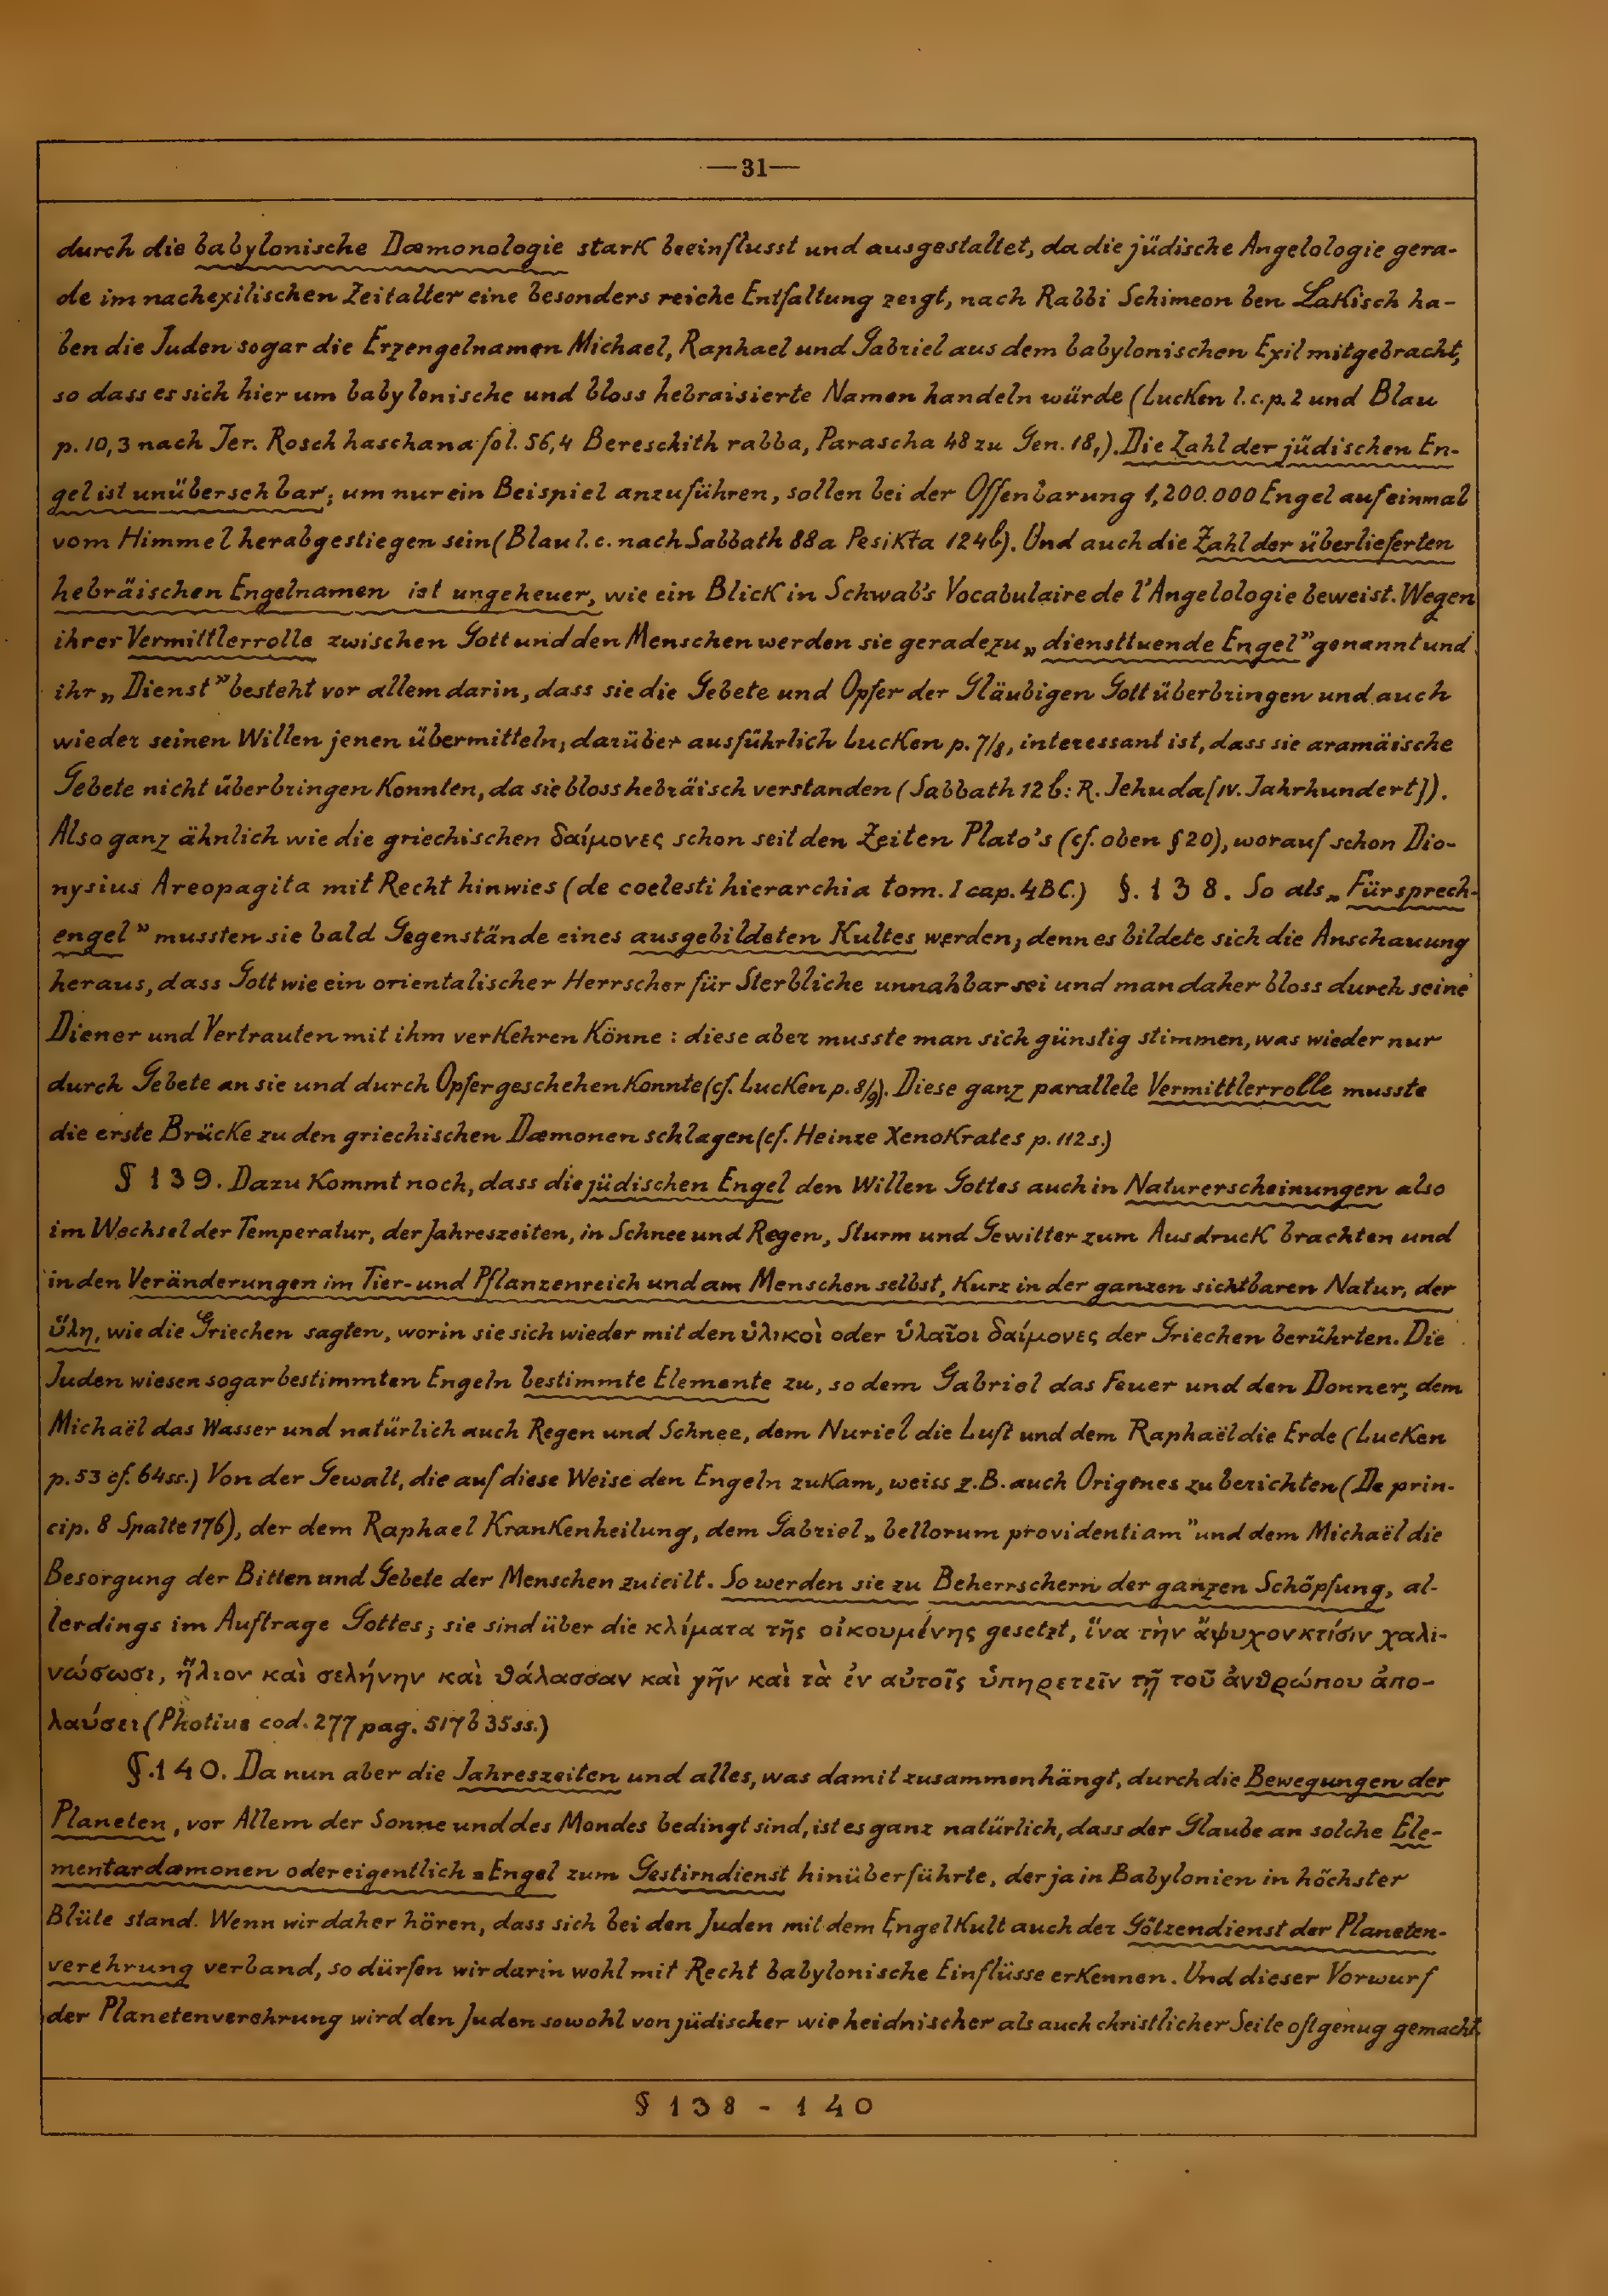 —31—
durch die babylonische Dæmonologie stark beeinflusst und ausgestaltet, da die jüdische Angelologie gera-
de im nachexilischen Zeitalter eine besonders reiche Entfaltung zeigt, nach Rabbi Schimeon ben Lakisch ha-
ben die Juden sogar die Erzengelnamen Michael, Raphael und Gabriel aus dem babylonischen Exil mitgebracht,
so dass es sich hier um babylonische und bloss hebraisierte Namen handeln würde (Lucken l.c.p.2 und Blau
p.10,3 nach Jer. Rosch haschana fol. 56,4 Bereschith rabba, Parascha 48 zu Gen. 18,). Die Zahl der jüdischen En-
gel ist unübersehbar; um nur ein Beispiel anzuführen, sollen bei der Offenbarung 1,200.000 Engel auf einmal
vom Himmel herabgestiegen sein (Blau l.c. nach Sabbath 88a Pesikta 124b). Und auch die Zahl der überlieferten
hebräischen Engelnamen ist ungeheuer, wie ein Blick in Schwab's Vocabulaire de l'Angelologie beweist. Wegen
ihrer Vermittlerrolle zwischen Gott und den Menschen werden sie geradezu „diensttuende Engel" genannt und
ihr „Dienst" besteht vor allem darin, dass sie die Gebete und Opfer der Gläubigen Gott überbringen und auch
wieder seinen Willen jenen übermitteln, darüber ausführlich Lucken p. 7/8, interessant ist, dass sie aramäische
Gebete nicht überbringen konnten, da sie bloss hebräisch verstanden (Sabbath 12b: R. Jehuda [IV. Jahrhundert]).
Also ganz ähnlich wie die griechischen δαίμονες schon seit den Zeiten Plato's (cf. oben § 20), worauf schon Dio-
nysius Areopagita mit Recht hinwies (de coelesti hierarchia tom. I cap. 4BC.) §. 138. So als „Fürsprech-
engel" mussten sie bald Gegenstände eines ausgebildeten Kultes werden; denn es bildete sich die Anschauung
heraus, dass Gott wie ein orientalischer Herrscher für Sterbliche unnahbar sei und man daher bloss durch seine
Diener und Vertrauten mit ihm verkehren könne: diese aber musste man sich günstig stimmen, was wieder nur
durch Gebete an sie und durch Opfer geschehen konnte (cf. Lucken p. 8/9). Diese ganz parallele Vermittlerrolle musste
die erste Brücke zu den griechischen Dæmonen schlagen (cf. Heinze Xenokrates p. 112 s.)
§ 139. Dazu kommt noch, dass die jüdischen Engel den Willen Gottes auch in Naturerscheinungen also
im Wechsel der Temperatur, der Jahreszeiten, in Schnee und Regen, Sturm und Gewitter zum Ausdruck brachten und
in den Veränderungen im Tier- und Pflanzenreich und am Menschen selbst, kurz in der ganzen sichtbaren Natur, der
ὕλη, wie die Griechen sagten, worin sie sich wieder mit den ὑλικοὶ oder ὑλαῖοι δαίμονες der Griechen berührten. Die
Juden wiesen sogar bestimmten Engeln bestimmte Elemente zu, so dem Gabriel das Feuer und den Donner, dem
Michaël das Wasser und natürlich auch Regen und Schnee, dem Nuriel die Luft und dem Raphaël die Erde (Lucken
p. 53 cf. 64 ss.) Von der Gewalt, die auf diese Weise den Engeln zukam, weiss z.B. auch Origenes zu berichten (De prin-
cip. 8 Spalte 176), der dem Raphael Krankenheilung, dem Gabriel „bellorum providentiam" und dem Michaël die
Besorgung der Bitten und Gebete der Menschen zuteilt. So werden sie zu Beherrschern der ganzen Schöpfung, al-
lerdings im Auftrage Gottes; sie sind über die κλίματα τῆς οἰκουμένης gesetzt, ἵνα τὴν ἄψυχον κτίσιν χαλι-
νώσωσι, ἥλιον καὶ σελήνην καὶ θάλασσαν καὶ γῆν καὶ τὰ ἐν αὐτοῖς ὑπηρετεῖν τῇ τοῦ ἀνθρώπου ἀπο-
λαύσει (Photius cod. 277 pag. 517b 35 ss.)
§. 140. Da nun aber die Jahreszeiten und alles, was damit zusammenhängt, durch die Bewegungen der
Planeten, vor Allem der Sonne und des Mondes bedingt sind, ist es ganz natürlich, dass der Glaube an solche Ele-
mentardæmonen oder eigentlich = Engel zum Gestirndienst hinüberführte, der ja in Babylonien in höchster
Blüte stand. Wenn wir daher hören, dass sich bei den Juden mit dem Engelkult auch der Götzendienst der Planeten-
verehrung verband, so dürfen wir darin wohl mit Recht babylonische Einflüsse erkennen. Und dieser Vorwurf
der Planetenverehrung wird den Juden sowohl von jüdischer wie heidnischer als auch christlicher Seite oft genug gemacht
§ 138 - 140